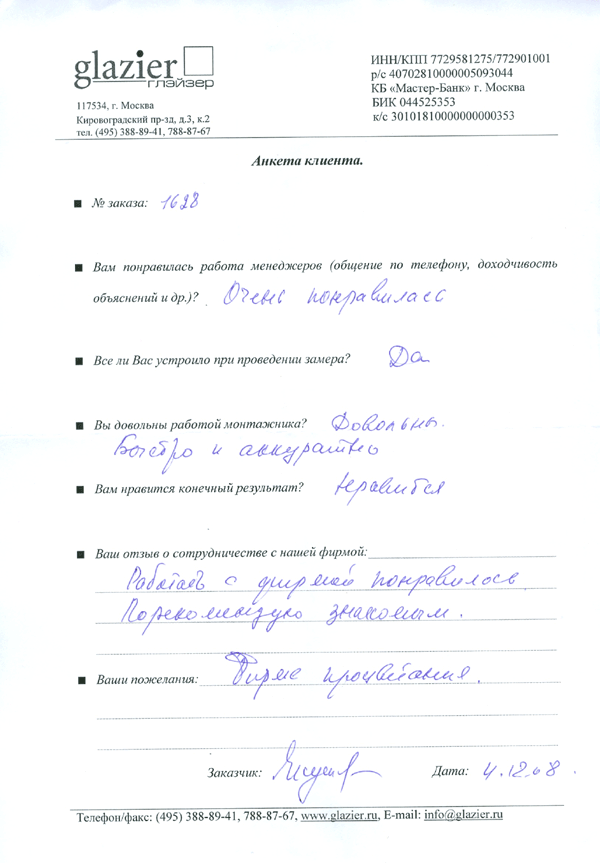 glazier
глэйзер
117534, г. Москва
Кировоградский пр-зд, д.3, к.2
тел. (495) 388-89-41, 788-87-67
ИНН/КПП 7729581275/772901001
р/с 40702810000005093044
КБ «Мастер-Банк» г. Москва
БИК 044525353
к/с 30101810000000000353
Анкета клиента.
№ заказа: 1628
Вам понравилась работа менеджеров (общение по телефону, доходчивость
объяснений и др.)? Очень понравилась
Все ли Вас устроило при проведении замера? Да
Вы довольны работой монтажника? Довольны.
Быстро и аккуратно
Вам нравится конечный результат? нравится
Ваш отзыв о сотрудничестве с нашей фирмой:
Работать с фирмой понравилось
Порекомендую знакомым.
Ваши пожелания: Фирме процветания.
Заказчик: Дата: 4.12.08.
Телефон/факс: (495) 388-89-41, 788-87-67, www.glazier.ru, E-mail: info@glazier.ru